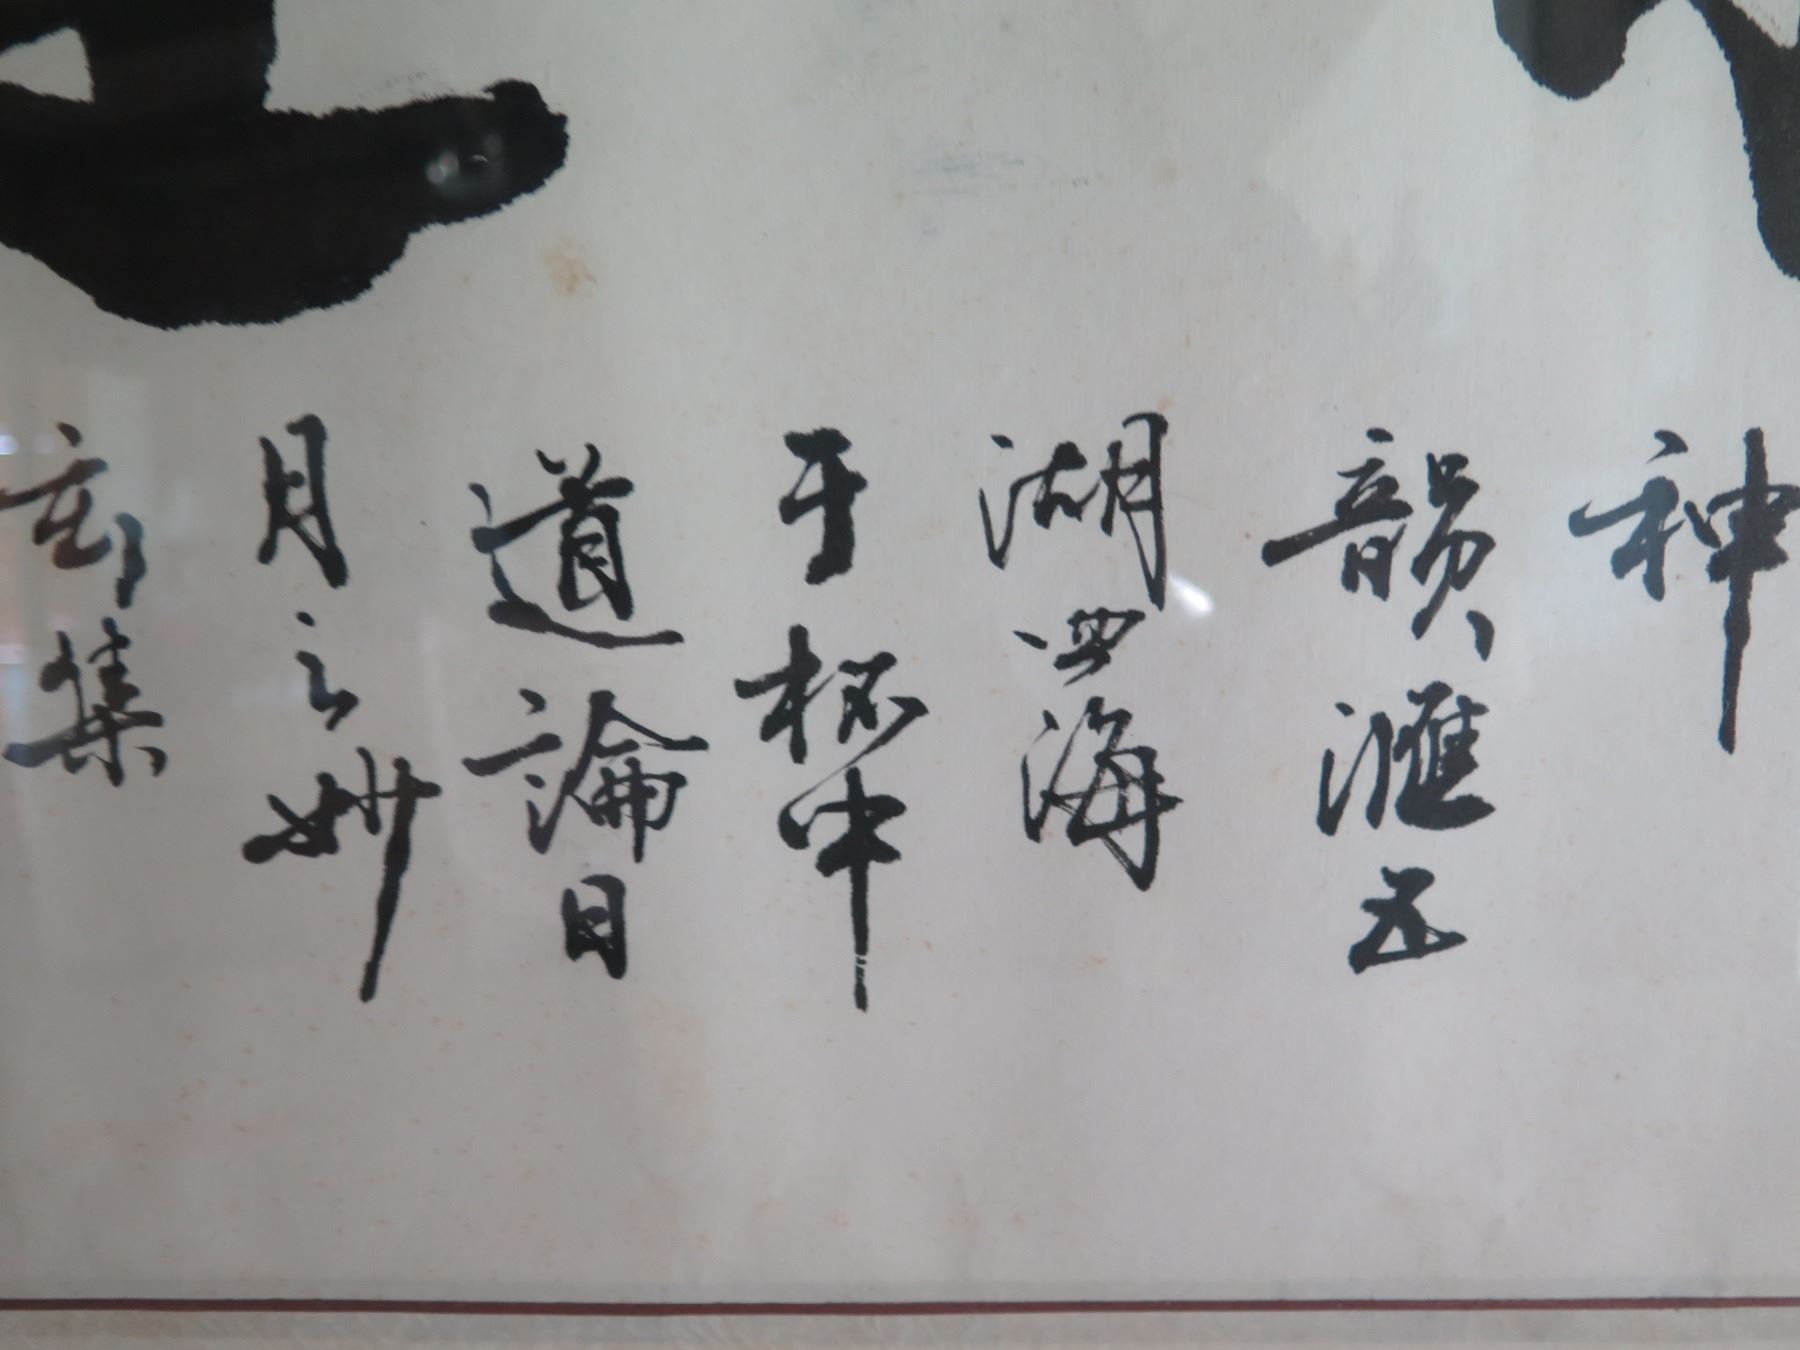 神
韻滙五
湖四海
于杯中
道論日
月之妙
玄集